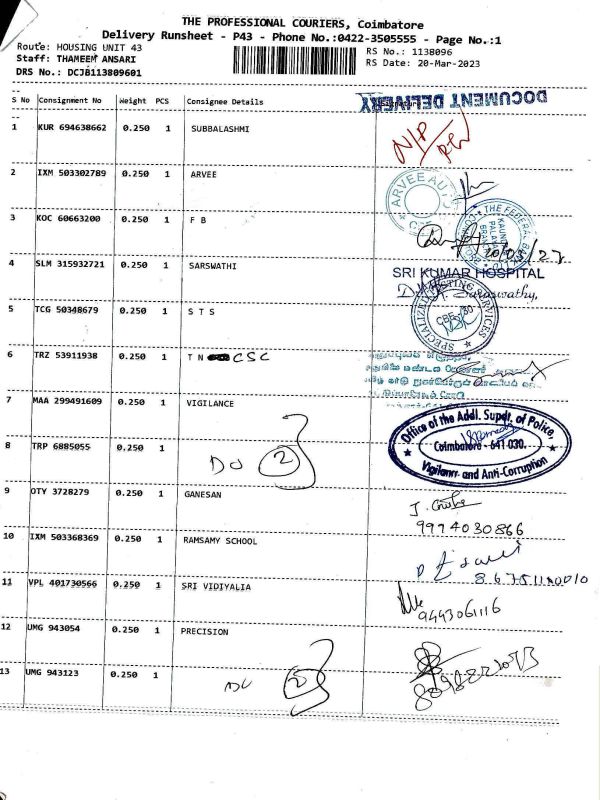 THE PROFESSIONAL COURIERS, Coimbatore
Delivery Runsheet - P43 - Phone No.:0422-3505555 - Page No.:1
Route: HOUSING UNIT 43
RS No.: 1138096
Staff: THAMEEM ANSARI
RS Date: 20-Mar-2023
DRS No.: DCJB113809601
S No Consignment No Weight PCS Consignee Details Signature
DOCUMENT DELIVERY
1 KUR 694638662 0.250 1 SUBBALASHMI
N/P
2 IXM 503302789 0.250 1 ARVEE
ARVEE AUTO
3 KOC 60663200 0.250 1 F B
THE FEDERAL BANK
20/03/23
4 SLM 315932721 0.250 1 SARSWATHI
SRI KUMAR HOSPITAL
Saraswathy,
5 TCG 50348679 0.250 1 S T S
SPECIALIZED TESTING SERVICES
CBE - 30
6 TRZ 53911938 0.250 1 T N CSC
7 MAA 299491609 0.250 1 VIGILANCE
Office of the Addl. Supdt. of Police,
Coimbatore - 641 030.
Vigilance and Anti-Corruption
8 TRP 6885055 0.250 1
2
9 OTY 3728279 0.250 1 GANESAN
9974030866
10 IXM 503368369 0.250 1 RAMSAMY SCHOOL
11 VPL 401730566 0.250 1 SRI VIDIYALIA
9443061116
12 UMG 943054 0.250 1 PRECISION
13 UMG 943123 0.250 1